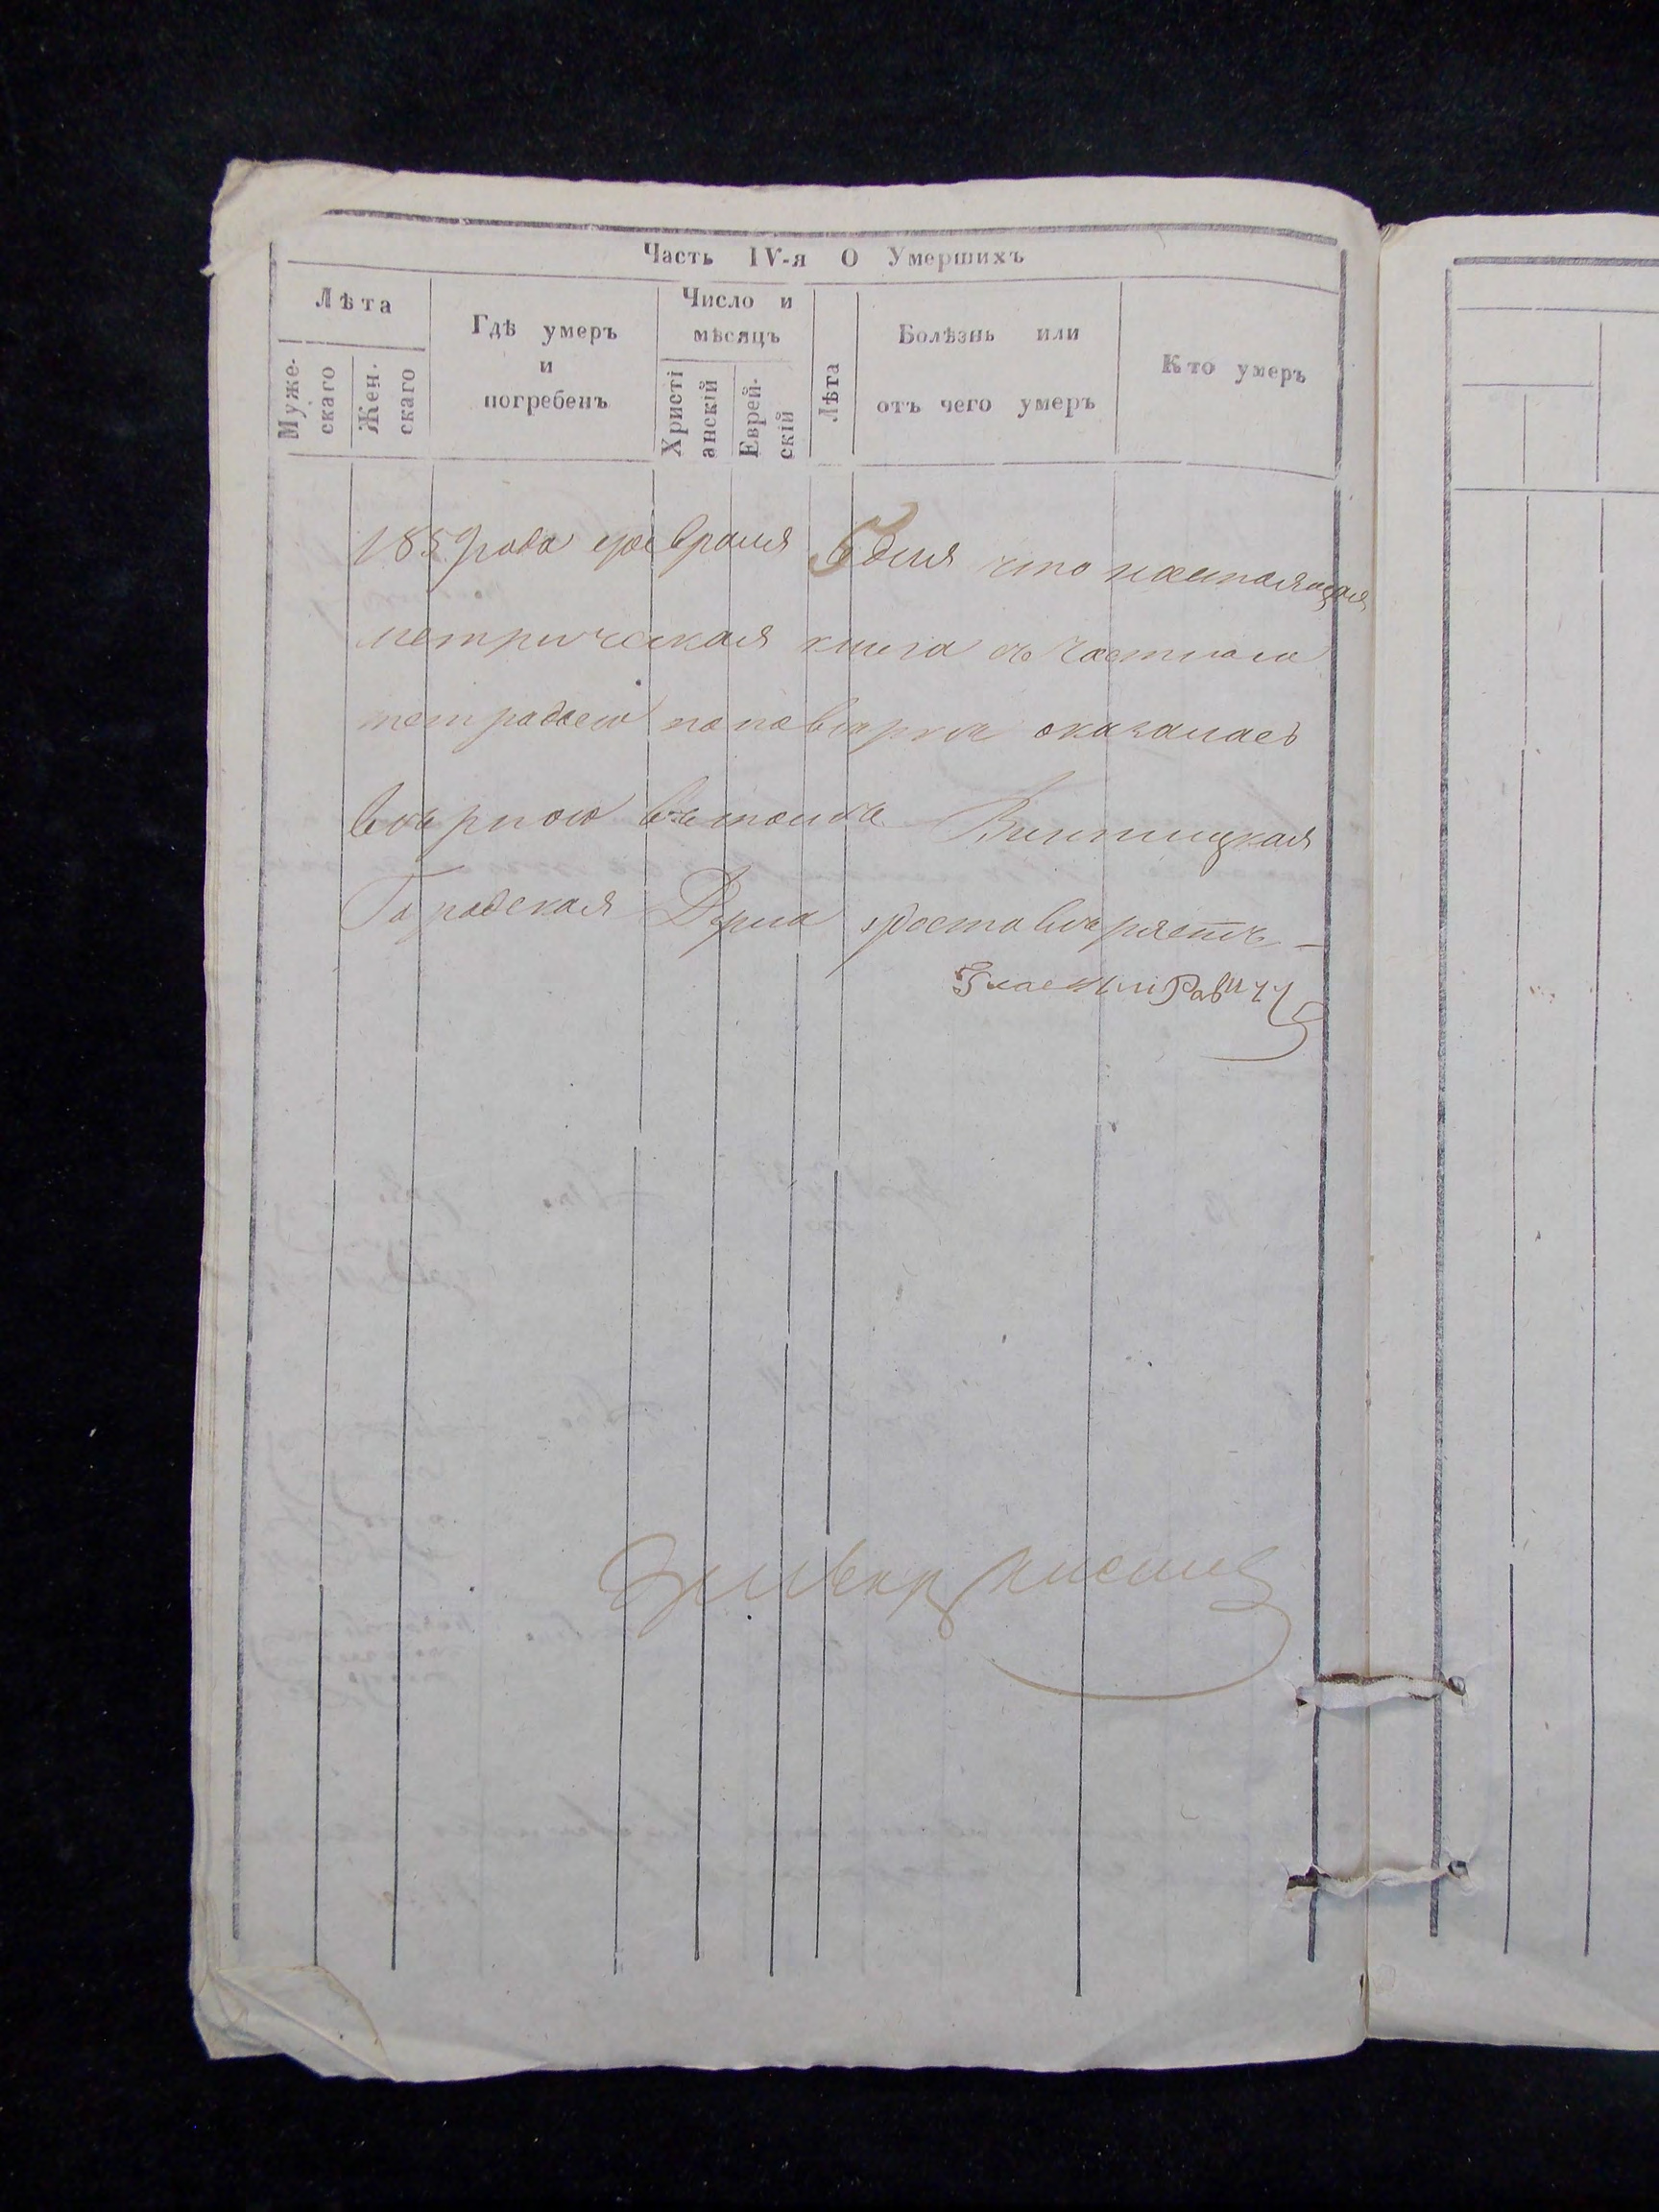 Часть IV-я О Умершихъ
Лѣта
Муже-
скаго
Жен-
скаго
Гдѣ умеръ
и
погребенъ
Число и
мѣсяцъ
Христі
анскій
Еврей-
скій
Лѣта
Болѣзнь или
отъ чего умеръ
Кто умеръ
1859 года февраля 6 дня что настоящая
метрическая книга съ частною
тетрадью по повѣркѣ оказалась
вѣрною въ томъ Винницкая
Городская Дума удостовѣряетъ
Гласный Равич